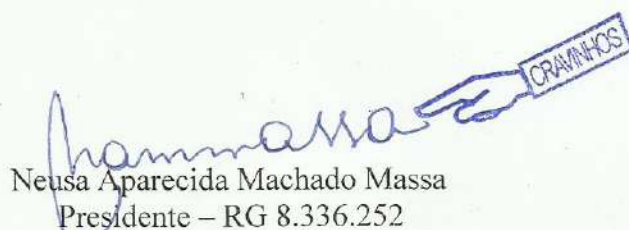 CRAVINHOS
Neusa Aparecida Machado Massa
Presidente – RG 8.336.252